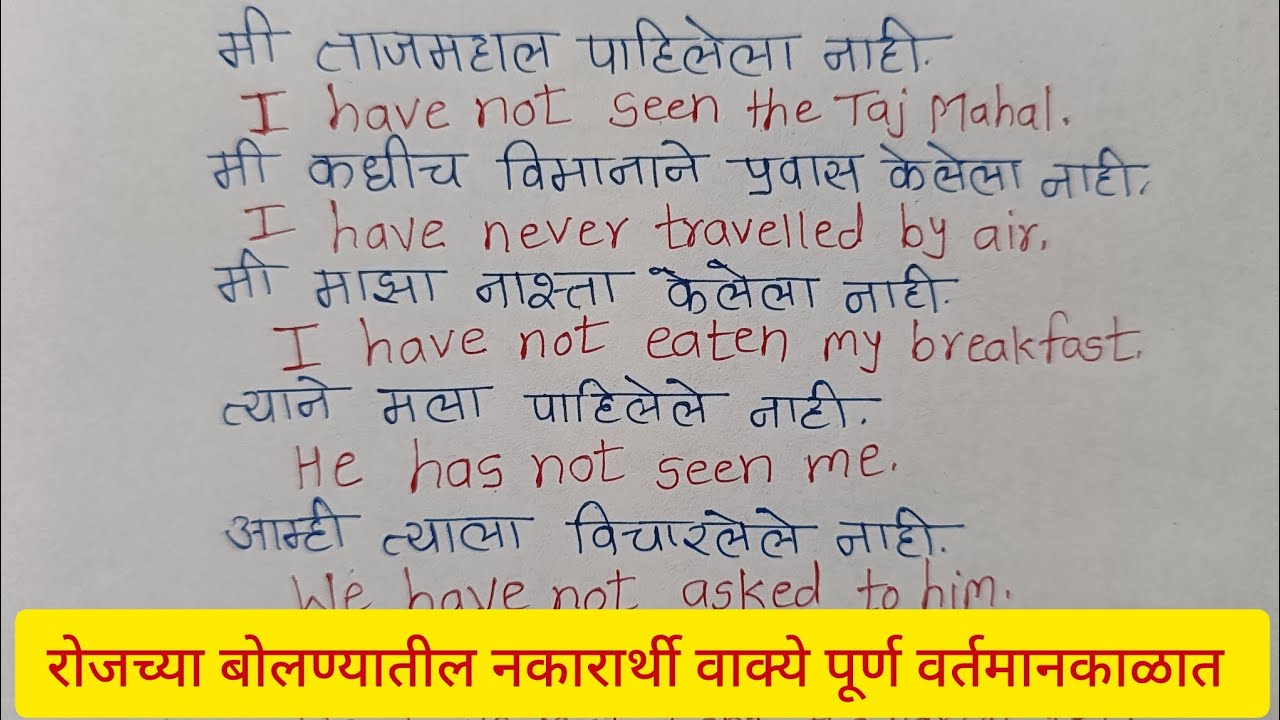 मी ताजमहाल पाहिलेला नाही.
I have not seen the Taj Mahal.
मी कधीच विमानाने प्रवास केलेला नाही.
I have never travelled by air.
मी माझा नाश्ता केलेला नाही.
I have not eaten my breakfast.
त्याने मला पाहिलेले नाही.
He has not seen me.
आम्ही त्याला विचारलेले नाही.
We have not asked to him.
रोजच्या बोलण्यातील नकारार्थी वाक्ये पूर्ण वर्तमानकाळात